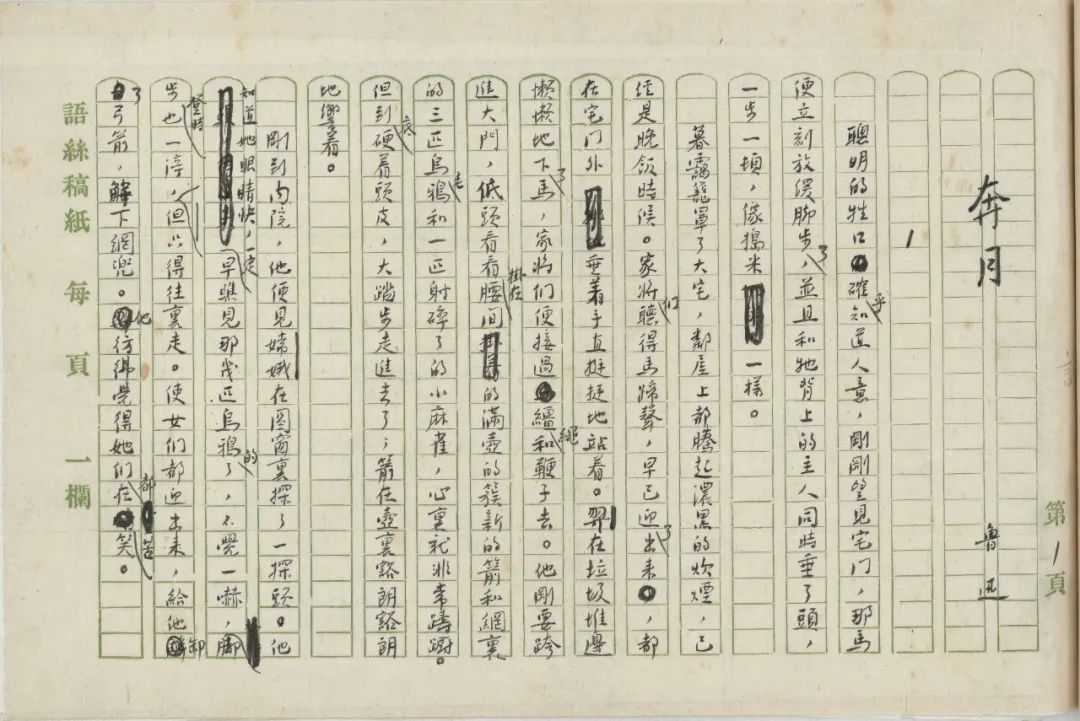 第1頁
奔月
魯迅
1
聰明的牲口確乎知道人意,剛剛望見宅門,那馬
便立刻放緩脚步了,並且和牠背上的主人同時垂了頭,
一步一頓,像搗米一樣。
暮靄籠罩了大宅,鄰屋上都騰起濃黑的炊煙,已
經是晚飯時候。家將們聽得馬蹄聲,早已迎了出來,都
在宅門外垂着手直挺挺地站着。羿在垃圾堆邊
懶懶地下了馬,家將們便接過繮繩和鞭子去。他剛要跨
進大門,低頭看看掛在腰間的滿壺的簇新的箭和網裏
的三匹烏老鴉和一匹射碎了的小麻雀,心裏就非常躊躕。
但到底硬着頭皮,大踏步走進去了;箭在壺裏豁朗豁朗
地響着。
剛到內院,他便見嫦娥在圓窗裏探了一探頭。他
知道她眼睛快,一定早瞧見那幾匹烏鴉的了,不覺一嚇,脚
步登時也一停,但只得往裏走。使女們都迎出來,給他卸
了弓箭,解下網兜。他彷彿覺得她們都在苦笑。
語絲稿紙 每頁一欄